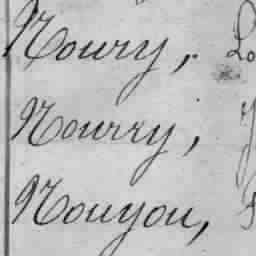 Noury, Lo
Nourry, J
Nouyou,